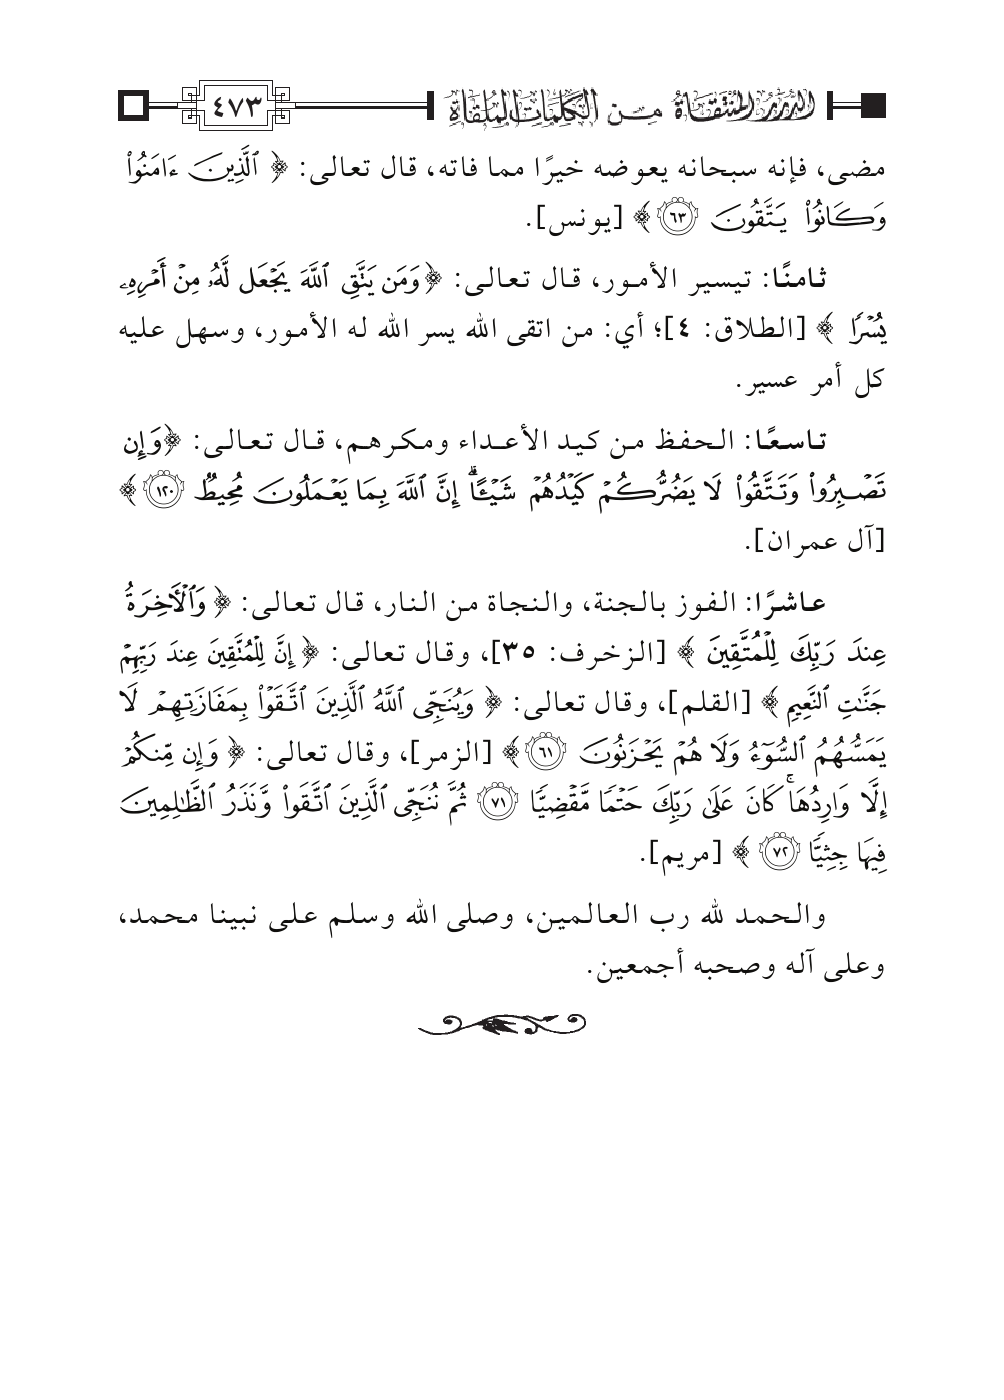 الدرر المنتقاة من الكلمات الملقاة ٤٧٣
مضى، فإنه سبحانه يعوضه خيرًا مما فاته، قال تعالى: ﴿ ٱلَّذِينَ ءَامَنُوا۟
وَكَانُوا۟ يَتَّقُونَ ٦٣ ﴾ [يونس].
ثامنًا: تيسير الأمور، قال تعالى: ﴿وَمَن يَتَّقِ ٱللَّهَ يَجْعَل لَّهُۥ مِنْ أَمْرِهِۦ
يُسْرًا ﴾ [الطلاق: ٤]؛ أي: من اتقى الله يسر الله له الأمور، وسهل عليه
كل أمر عسير.
تاسعًا: الحفظ من كيد الأعداء ومكرهم، قال تعالى: ﴿وَإِن
تَصْبِرُوا۟ وَتَتَّقُوا۟ لَا يَضُرُّكُمْ كَيْدُهُمْ شَيْـًٔا ۗ إِنَّ ٱللَّهَ بِمَا يَعْمَلُونَ مُحِيطٌ ١٢٠ ﴾
[آل عمران].
عاشرًا: الفوز بالجنة، والنجاة من النار، قال تعالى: ﴿ وَٱلْـَٔاخِرَةُ
عِندَ رَبِّكَ لِلْمُتَّقِينَ ﴾ [الزخرف: ٣٥]، وقال تعالى: ﴿ إِنَّ لِلْمُتَّقِينَ عِندَ رَبِّهِمْ
جَنَّـٰتِ ٱلنَّعِيمِ ﴾ [القلم]، وقال تعالى: ﴿ وَيُنَجِّى ٱللَّهُ ٱلَّذِينَ ٱتَّقَوْا۟ بِمَفَازَتِهِمْ لَا
يَمَسُّهُمُ ٱلسُّوٓءُ وَلَا هُمْ يَحْزَنُونَ ٦١ ﴾ [الزمر]، وقال تعالى: ﴿ وَإِن مِّنكُمْ
إِلَّا وَارِدُهَا ۚ كَانَ عَلَىٰ رَبِّكَ حَتْمًا مَّقْضِيًّا ٧١ ثُمَّ نُنَجِّى ٱلَّذِينَ ٱتَّقَوا۟ وَّنَذَرُ ٱلظَّـٰلِمِينَ
فِيهَا جِثِيًّا ٧٢ ﴾ [مريم].
والحمد لله رب العالمين، وصلى الله وسلم على نبينا محمد،
وعلى آله وصحبه أجمعين.